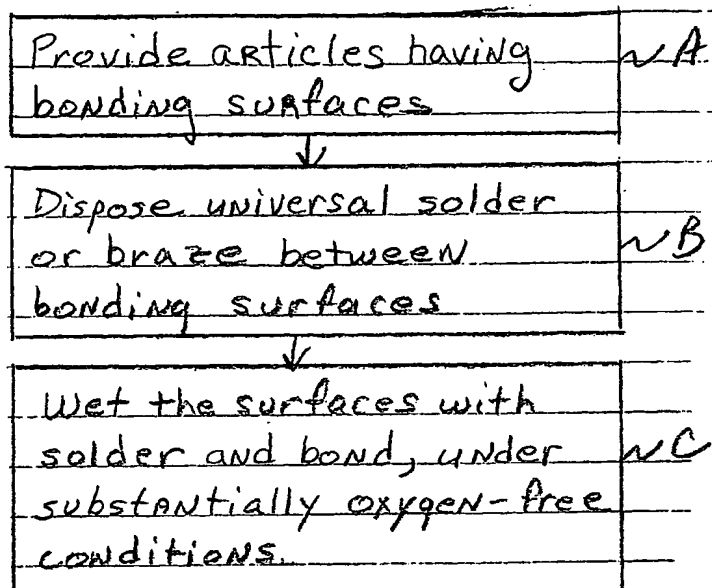 Provide articles having
~A
bonding surfaces
Dispose universal solder
or braze between
~B
bonding surfaces
Wet the surfaces with
solder and bond, under
~C
substantially oxygen-free
conditions.